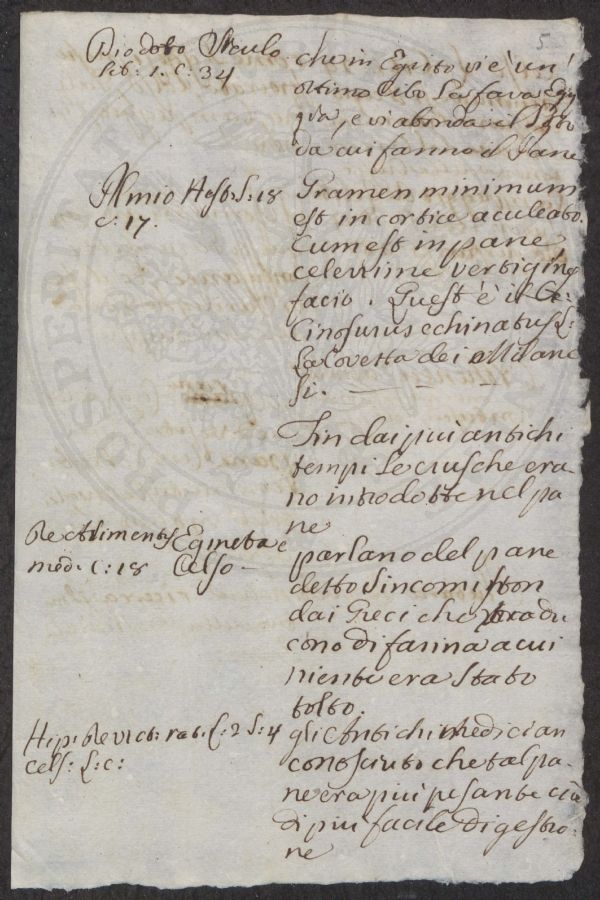 5
Diodoro Siculo
Lib: 1. C: 34
che in Egitto vi è un'
ottimo cibo La fava Egiz
zia, e vi abonda il
da cui fanno il Pane
Plinio Hist: L: 18
C: 17.
Gramen minimum
est in cortice aculeato.
Cum est in pane
celerrime vertigines
facio. Quest'è il
Cinosurus echinatus L:
La Covetta dei Milane
si. —
Fin dai piu antichi
tempi Le crusche era
no introdotte nel pa
ne
De Alimentis Egineta e
med: C: 18 Celso —
parlano del pane
detto Sincomiston
dai Greci che tradu
cono di farina a cui
niente era stato
tolto.
Hip: de vict: rat: L: 2 S: 4
Cels: L: c:
gli Antichi Medici an
conosciuto che tal pa-
ne era piu pesante
di piu facile digestio-
ne